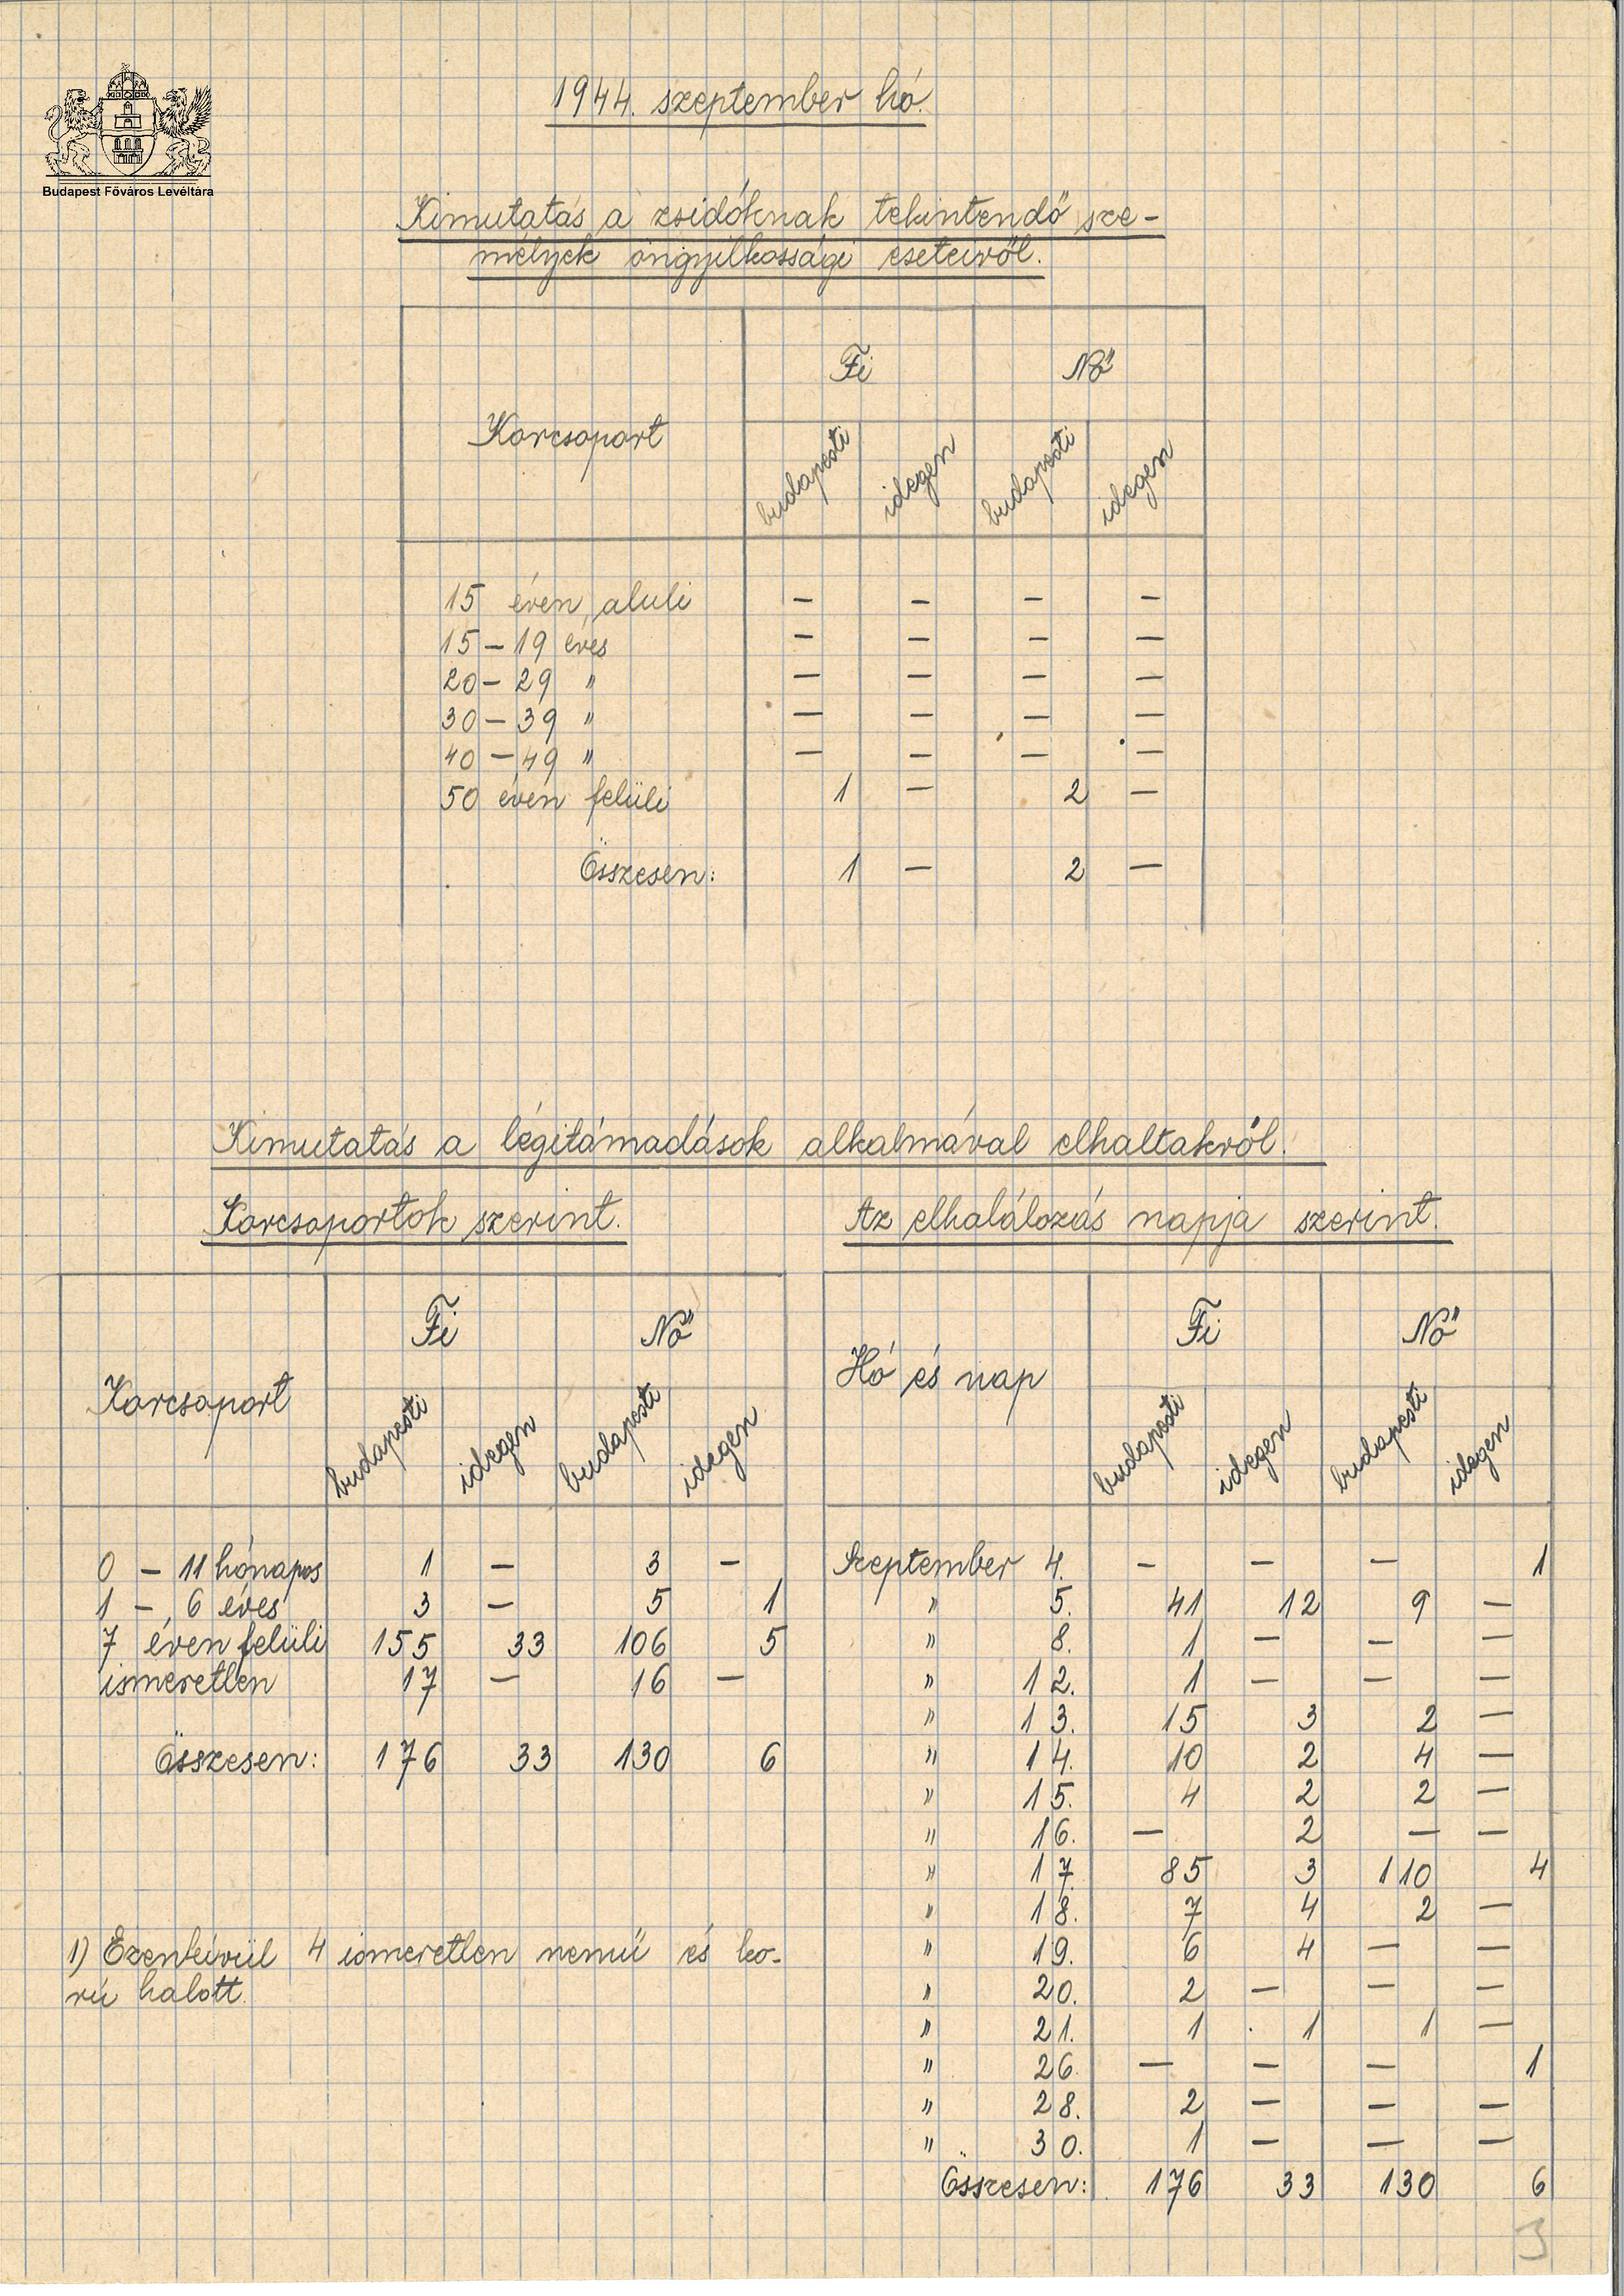 Budapest Főváros Levéltára
1944. szeptember hó.
Kimutatás a zsidóknak tekintendő sze-
mélyek öngyilkossági eseteiről.
Korcsoport Fi Nő
budapesti idegen budapesti idegen
15 éven aluli — — — —
15 – 19 éves — — — —
20 – 29 " — — — —
30 – 39 " — — — —
40 – 49 " — — — —
50 éven felüli 1 — 2 —
Összesen: 1 — 2 —
Kimutatás a légitámadások alkalmával elhaltakról.
Korcsoportok szerint.
Korcsoport Fi Nő
budapesti idegen budapesti idegen
0 – 11 hónapos 1 — 3 —
1 – 6 éves 3 — 5 1
7 éven felüli 155 33 106 5
ismeretlen 17 — 16 —
Összesen: 176 33 130 6
1) Ezenkívül 4 ismeretlen nemű és ko-
rú halott.
Az elhalálozás napja szerint.
Hó és nap Fi Nő
budapesti idegen budapesti idegen
Szeptember 4. — — — 1
" 5. 41 12 9 —
" 8. 1 — — —
" 12. 1 — — —
" 13. 15 3 2 —
" 14. 10 2 4 —
" 15. 4 2 2 —
" 16. — 2 — —
" 17. 85 3 110 4
" 18. 7 4 2 —
" 19. 6 4 — —
" 20. 2 — — —
" 21. 1 1 1 —
" 26. — — — 1
" 28. 2 — — —
" 30. 1 — — —
Összesen: 176 33 130 6
3